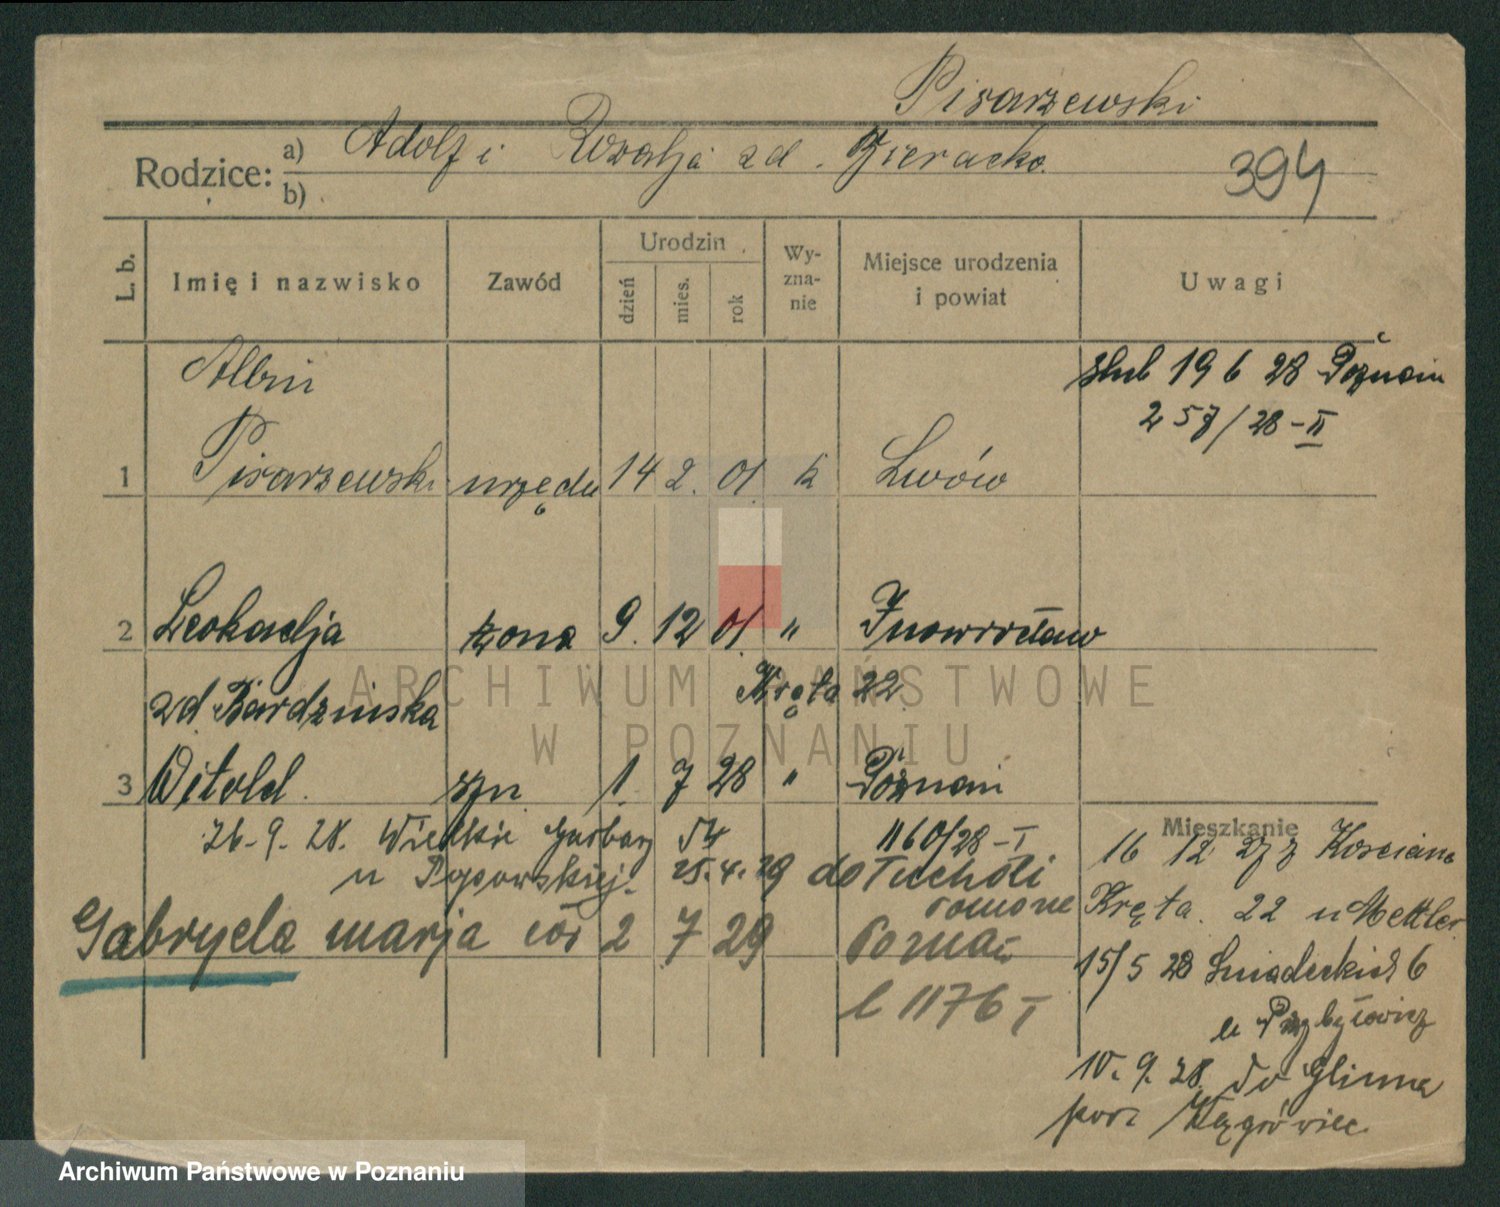 Pisarzewski
Rodzice: a) Adolf i Rozalja zd. Zieracka
b)
394
L. b.
Imię i nazwisko
Zawód
Urodzin
dzień
mies.
rok
Wy-
zna-
nie
Miejsce urodzenia
i powiat
Uwagi
Albin
ślub 19 6 28 Poznań
257/28-II
1 Pisarzewski urzędn 14 2. 01 k Lwów
2 Leokadja żona 9. 12 01 " Inowrocław
zd Bardzińska Kręta 22
3 Witold syn 1. 7 28 " Poznań
26.9.28. Wielkie Garbary 54 1160/28-I
u 25.4.29 do Tucholi
Gabryela marja cór 2 7 29 Poznań
1176 I
Mieszkanie
16 12 27 z Kościana
Kręta. 22 u Mettler
15/5 28 Śniadeckich 6
u Przybyłowicz
10.9.28. do Glinna
pow. Wągrowiec
ARCHIWUM PAŃSTWOWE
W POZNANIU
Archiwum Państwowe w Poznaniu